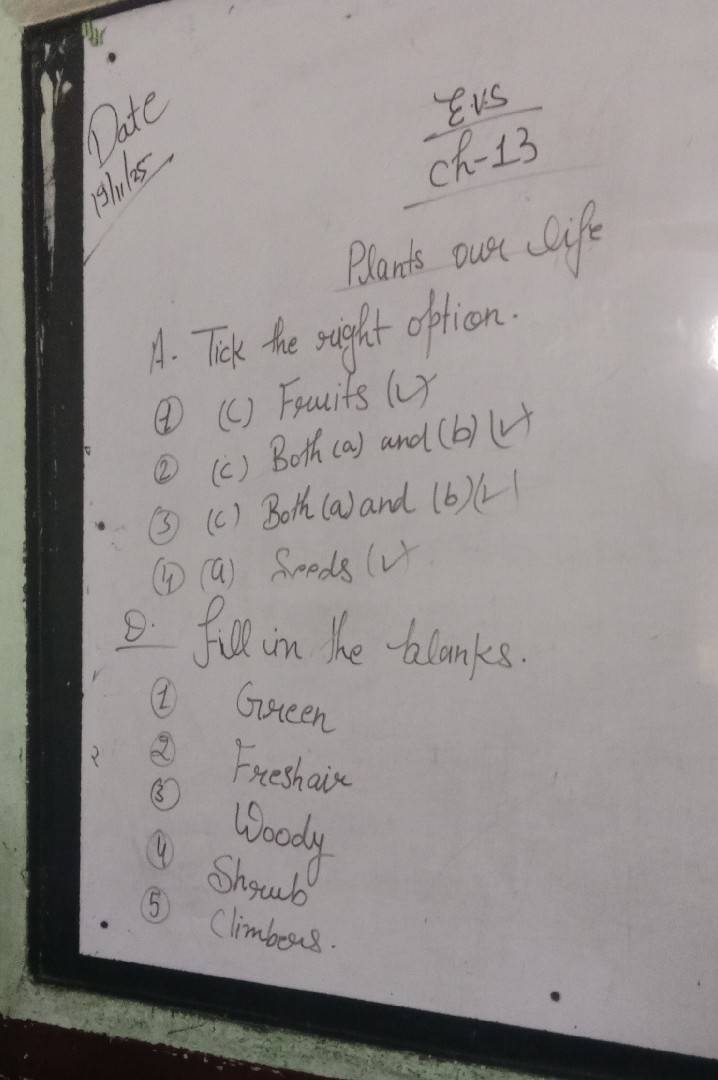 Date
19/11/25
E.V.S
Ch-13
Plants our life
A. Tick the right option.
① (C) Fruits (✓)
② (c) Both (a) and (b) (✓)
③ (c) Both (a) and (b) (✓)
④ (a) Seeds (✓)
D. fill in the blanks.
① Green
② Freshair
③ Woody
④ Shrub
⑤ Climbers.